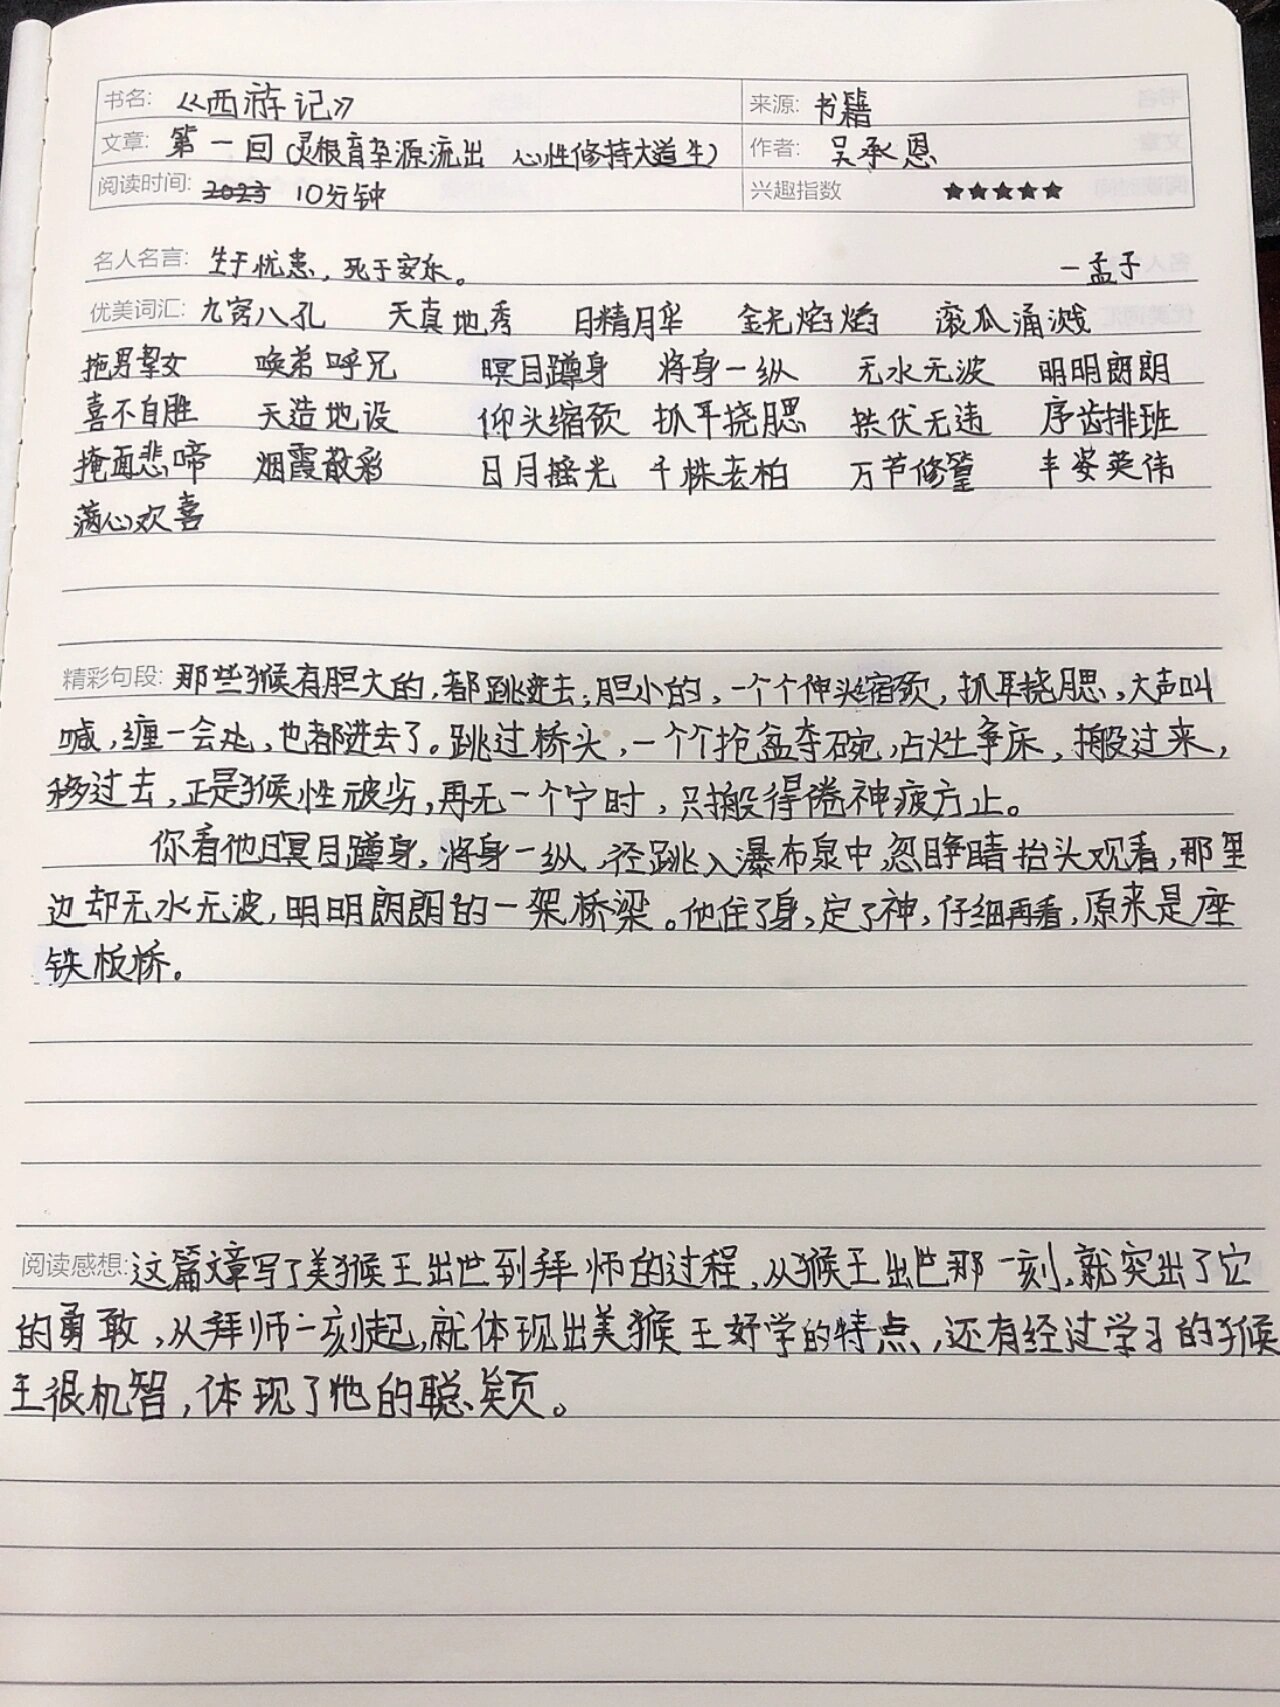 书名: 《西游记》 来源: 书籍
文章: 第一回(灵根育孕源流出 心性修持大道生) 作者: 吴承恩
阅读时间: 2023 10分钟 兴趣指数 ★★★★★
名人名言: 生于忧患，死于安乐。 —孟子
优美词汇: 九窍八孔 天真地秀 日精月华 金光焰焰 滚瓜涌溅
拖男挈女 唤弟呼兄 瞑目蹲身 将身一纵 无水无波 明明朗朗
喜不自胜 天造地设 伸头缩颈 抓耳挠腮 拱伏无违 序齿排班
掩面悲啼 烟霞散彩 日月摇光 千株老柏 万节修篁 丰姿英伟
满心欢喜
精彩句段: 那些猴有胆大的，都跳进去；胆小的，一个个伸头缩颈，抓耳挠腮，大声叫
喊，缠一会儿，也都进去了。跳过桥头，一个个抢盆夺碗，占灶争床，搬过来，
移过去，正是猴性顽劣，再无一个宁时，只搬得倦神疲方止。
你看他瞑目蹲身，将身一纵，径跳入瀑布泉中，忽睁睛抬头观看，那里
边却无水无波，明明朗朗的一架桥梁。他住了身，定了神，仔细再看，原来是座
铁板桥。
阅读感想: 这篇文章写了美猴王出世到拜师的过程，从猴王出世那一刻，就突出了它
的勇敢，从拜师一刻起，就体现出美猴王好学的特点，还有经过学习的猴
王很机智，体现了他的聪颖。